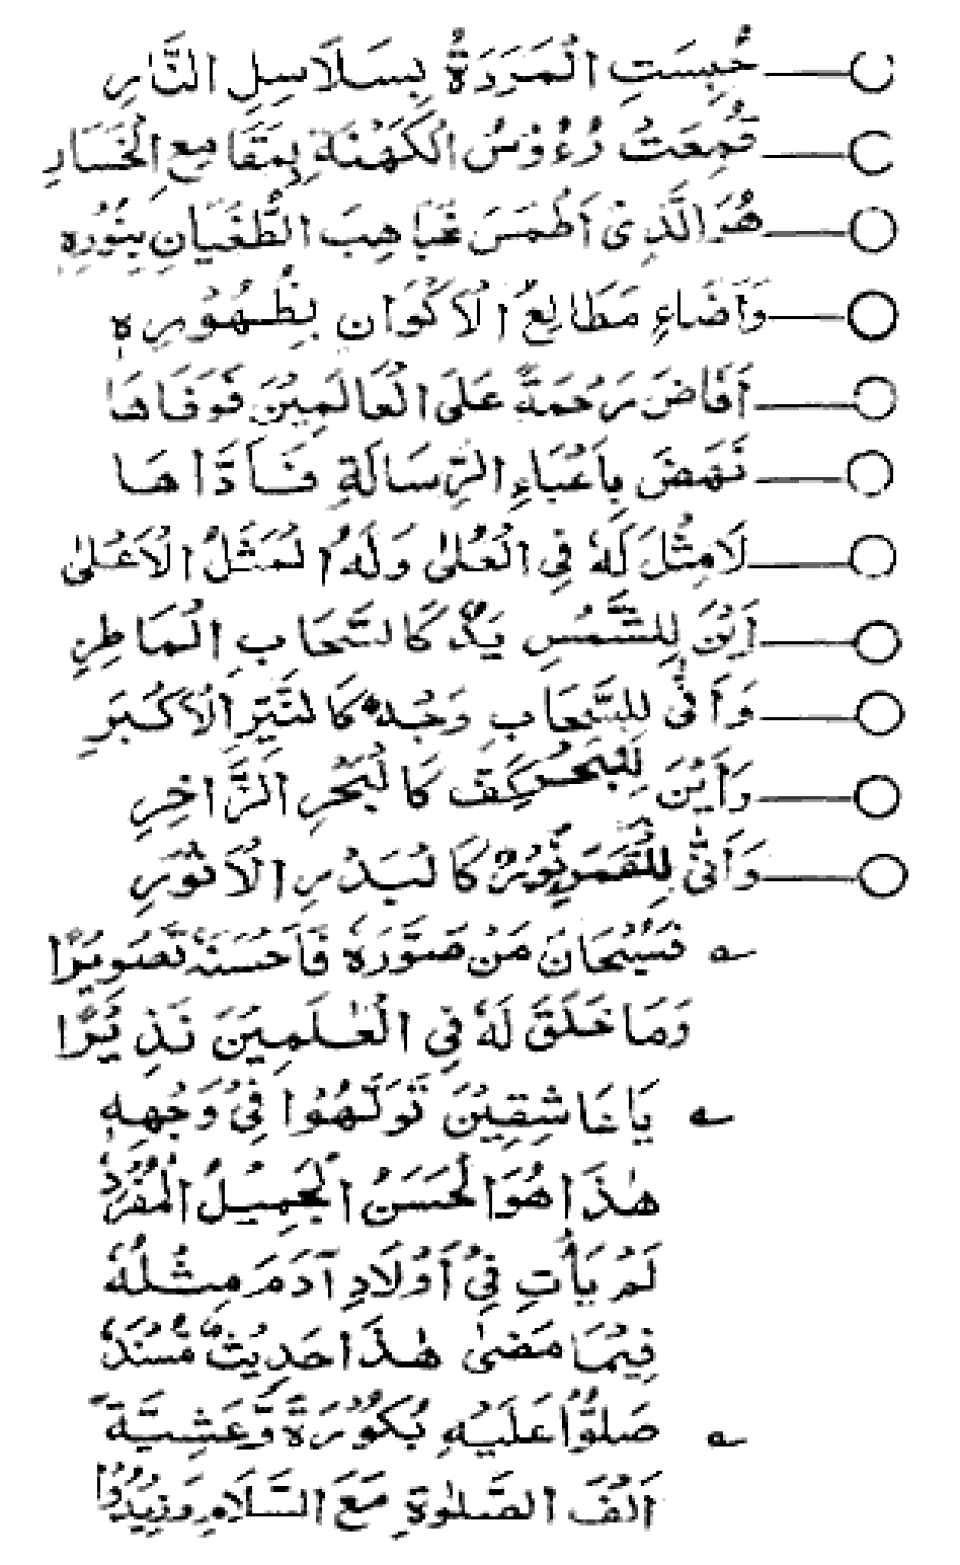 حُبِسَتِ الْمَرَدَةُ بِسَلَاسِلِ النَّارِ
قُمِعَتْ رُءُوْسُ الْكَهَنَةِ بِمَقَامِعِ الْخَسَارِ
هُوَالَّذِىْ اَطْمَسَ غَيَاهِبَ الطُّغْيَانِ بِنُوْرِهٖ
وَاَضَاءِ مَطَالِعُ الْاَكْوَانِ بِظُهُوْرِهٖ
اَفَاضَ رَحْمَةً عَلَى الْعَالَمِيْنَ فَوَفَاهَا
نَهَضَ بِاَعْبَاءِ الرِّسَالَةِ فَاَدَّاهَا
لَامِثْلَ لَهٗ فِى الْعُلٰى وَلَهُ الْمَثَلُ الْاَعْلٰى
اَيْنَ لِلشَّمْسِ يَدٌ كَالسَّحَابِ الْمَاطِرِ
وَاَنّٰى لِلسَّحَابِ وَجْهٌ كَالنَّيِّرِ الْاَكْبَرِ
وَاَيْنَ لِلْبَحْرِ كَفٌّ كَالْبَحْرِ الزَّاخِرِ
وَاَنّٰى لِلْقَمَرِ نُوْرٌ كَالْبَدْرِ الْاَنْوَرِ
فَسُبْحَانَ مَنْ صَوَّرَهٗ فَاَحْسَنَهٗ تَصْوِيْرًا
وَمَا خَلَقَ لَهٗ فِى الْعٰلَمِيْنَ نَذِيْرًا
يَا عَاشِقِيْنَ تَوَلَّهُوْا فِىْ وَجْهِهٖ
هٰذَا هُوَ الْحَسَنُ الْجَمِيْلُ الْمُفْرَدٗ
لَمْ يَأْتِ فِىْ اَوْلَادِ آدَمَ مِثْلُهٗ
فِيْمَا مَضٰى هٰذَا حَدِيْثٌ مُّسْنَدٗ
صَلُّوْا عَلَيْهِ بُكُوْرَةً وَّعَشِيَّةً
اَلْفَ الصَّلٰوةِ مَعَ السَّلَامِ وَزِيْدُوْا